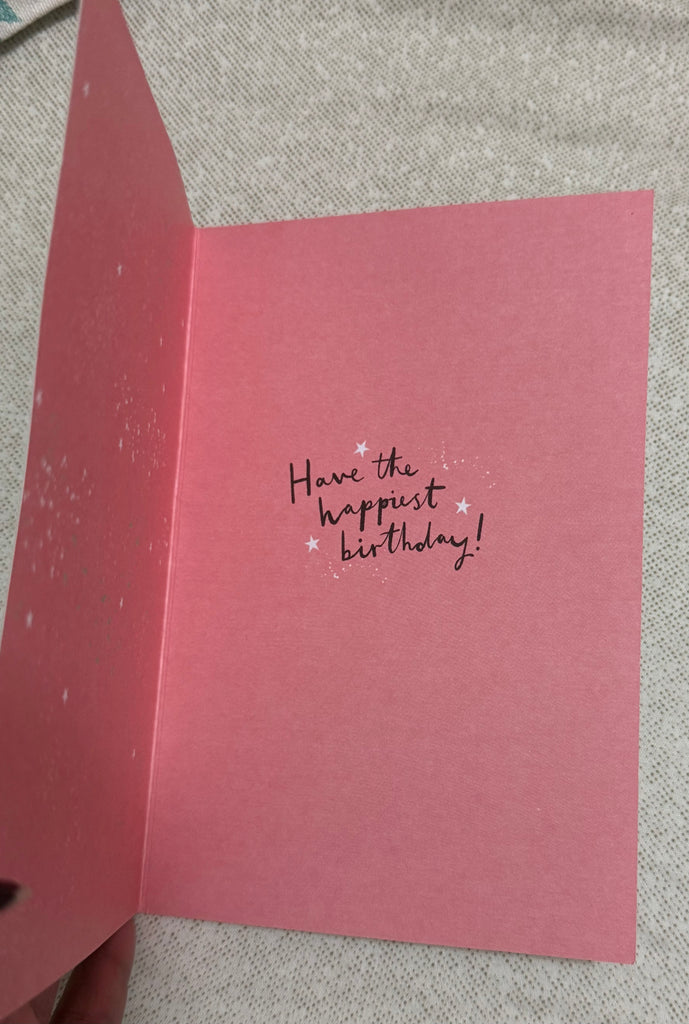 Have the
happiest
birthday!